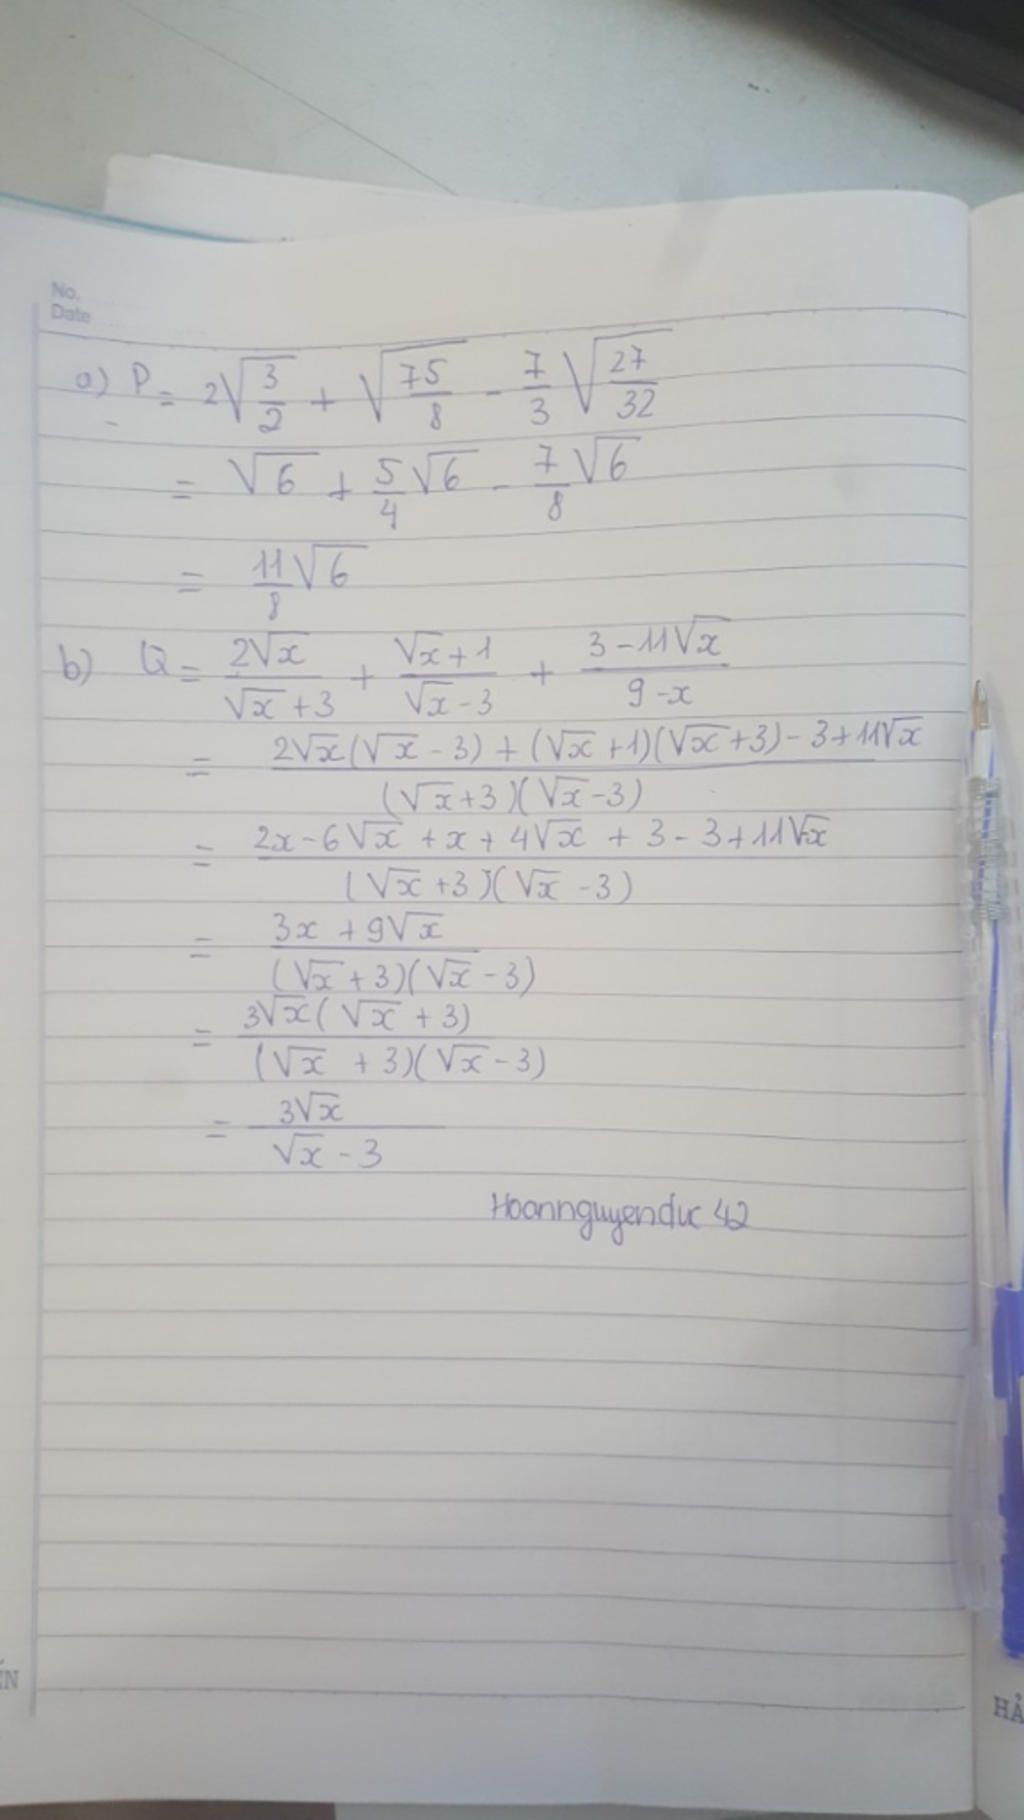 No.
Date
a) P = 2√(3/2) + √(75/8) - 7/3 √(27/32)
= √6 + 5/4 √6 - 7/8 √6
= 11/8 √6
b) Q = 2√x/(√x+3) + (√x+1)/(√x-3) + (3-11√x)/(9-x)
= (2√x(√x-3) + (√x+1)(√x+3) - 3 + 11√x)/((√x+3)(√x-3))
= (2x - 6√x + x + 4√x + 3 - 3 + 11√x)/((√x+3)(√x-3))
= (3x + 9√x)/((√x+3)(√x-3))
= 3√x(√x+3)/((√x+3)(√x-3))
= 3√x/(√x-3)
Hoannguyenduc 42
ẾN
HẢ